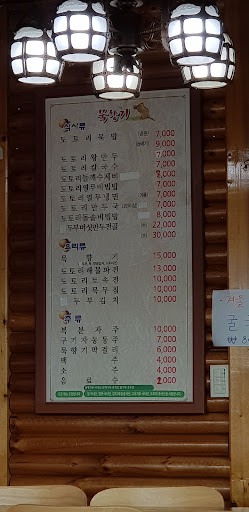 묵향기
식사류
도토리묵밥 7,000
9,000
도토리왕만두 7,000
도토리칼국수 7,000
도토리들깨수제비 7,000
도토리쟁무비빔밥 7,000
도토리물냉면 7,000
도토리만두국 7,000
도토리돌솥비빔밥 8,000
두부버섯만두전골 (소) 22,000
(대) 30,000
요리류
묵향기 15,000
도토리해물파전 13,000
도토리쑥전 10,000
도토리묵무침 10,000
두부김치 10,000
주류
복분자주 10,000
구기자동동주 7,000
묵향기막걸리 6,000
맥주 4,000
소주 4,000
음료수 2,000
겨울
굴